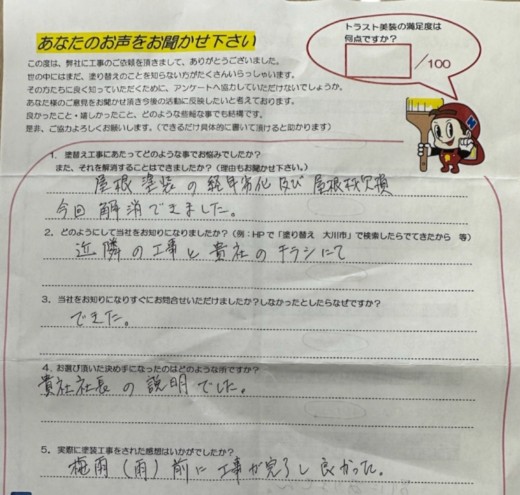 あなたのお声をお聞かせ下さい
トラスト美装の満足度は
何点ですか?
/100
この度は、弊社に工事のご依頼を頂きまして、ありがとうございました。
世の中にはまだ、塗り替えのことを知らない方がたくさんいらっしゃいます。
その方たちに良く知っていただくために、アンケートへ協力していただけないでしょうか。
あなた様のご意見をお聞かせ頂き今後の活動に反映したいと考えております。
良かったこと・嬉しかったこと、どのような些細な事でも結構です。
是非、ご協力よろしくお願いします。(できるだけ具体的に書いて頂けると助かります)
1. 塗替え工事にあたってどのような事でお悩みでしたか?
また、それを解消することはできましたか?(理由もお聞かせ下さい。)
屋根塗装の経年劣化及び屋根材欠損
今回解消できました。
2. どのようにして当社をお知りになりましたか?(例:HPで「塗り替え 大川市」で検索したらでてきたから 等)
近隣の工事と貴社のチラシにて
3. 当社をお知りになりすぐにお問合せいただけましたか?しなかったとしたらなぜですか?
できた。
4. お選び頂いた決め手になったのはどのような所ですか?
貴社社長の説明でした。
5. 実際に塗装工事をされた感想はいかがでしたか?
梅雨(雨)前に工事が完了し良かった。